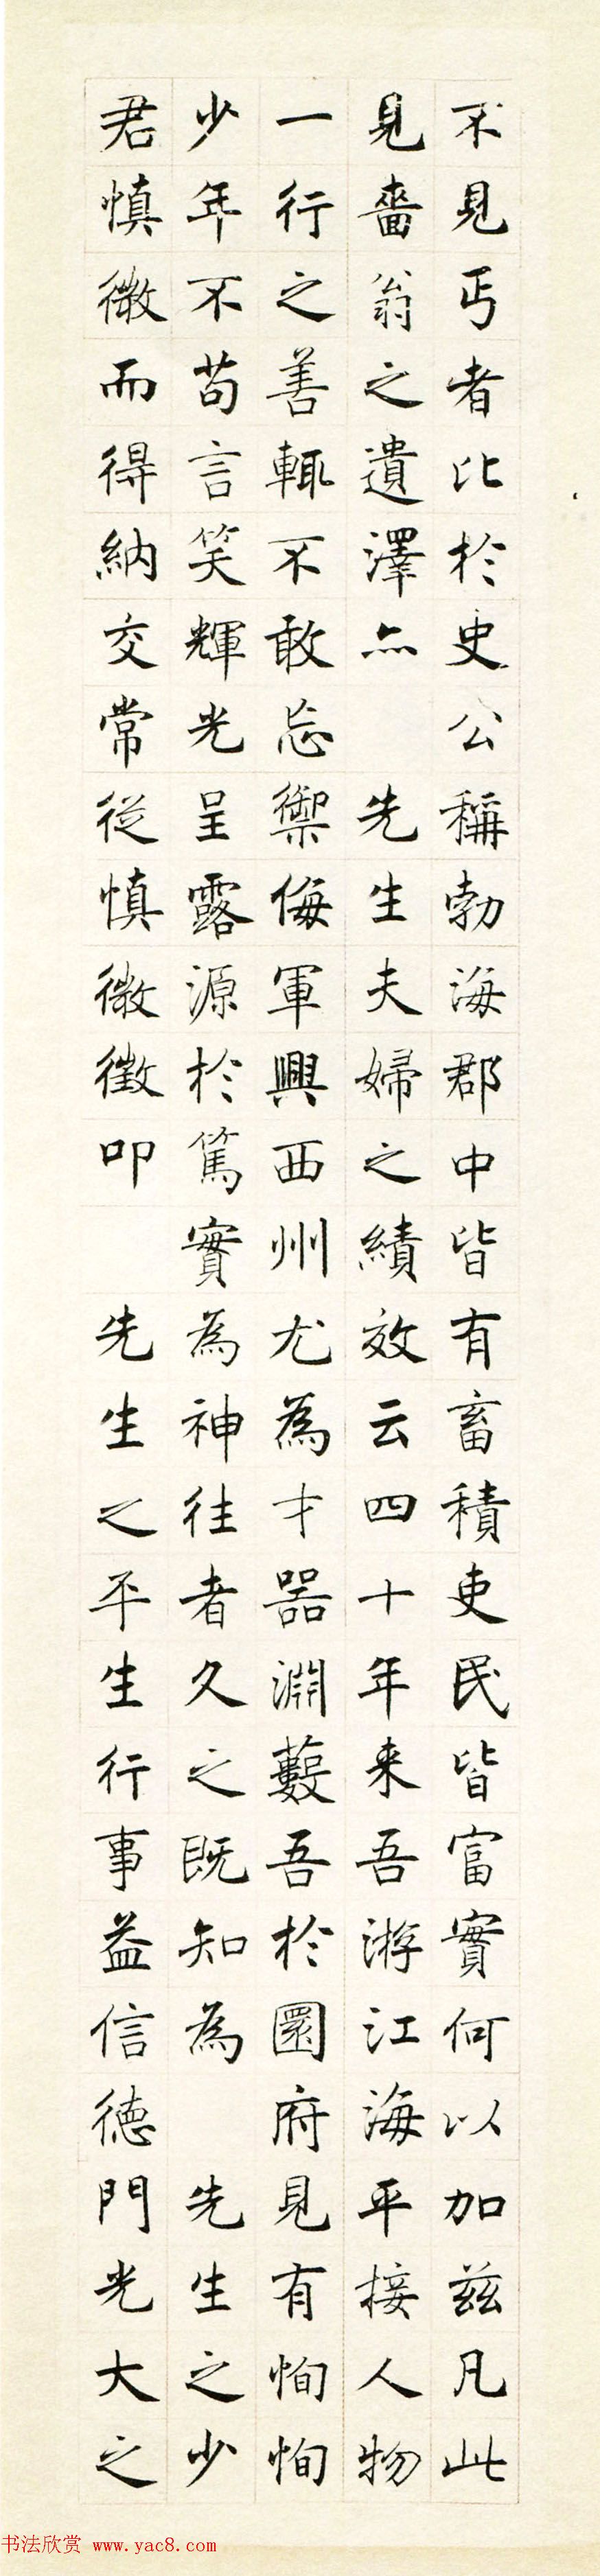 不見丐者比於史公稱勃海郡中皆有畜積吏民皆富實何以加茲凡此
見嗇翁之遺澤亦 先生夫婦之績效云四十年来吾游江海平接人物
一行之善輒不敢忘禦侮軍興西州尤為才器淵藪吾於圜府見有恂恂
少年不苟言笑輝光呈露源於篤實為神往者久之既知為 先生之少
君慎微而得納交常從慎微徵叩 先生之平生行事益信德門光大之
书法欣赏 www.yac8.com